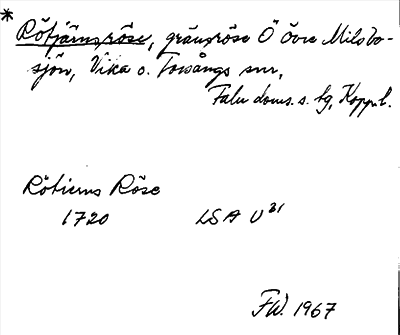 * Rötjärnsröse, gränsröse Ö Övre Milsbo-
sjön, Vika o. Torsångs snr,
Falu doms. s. tg, Kopp. l.
Rötierns Röse
1720 LSA U 21
FW. 1967